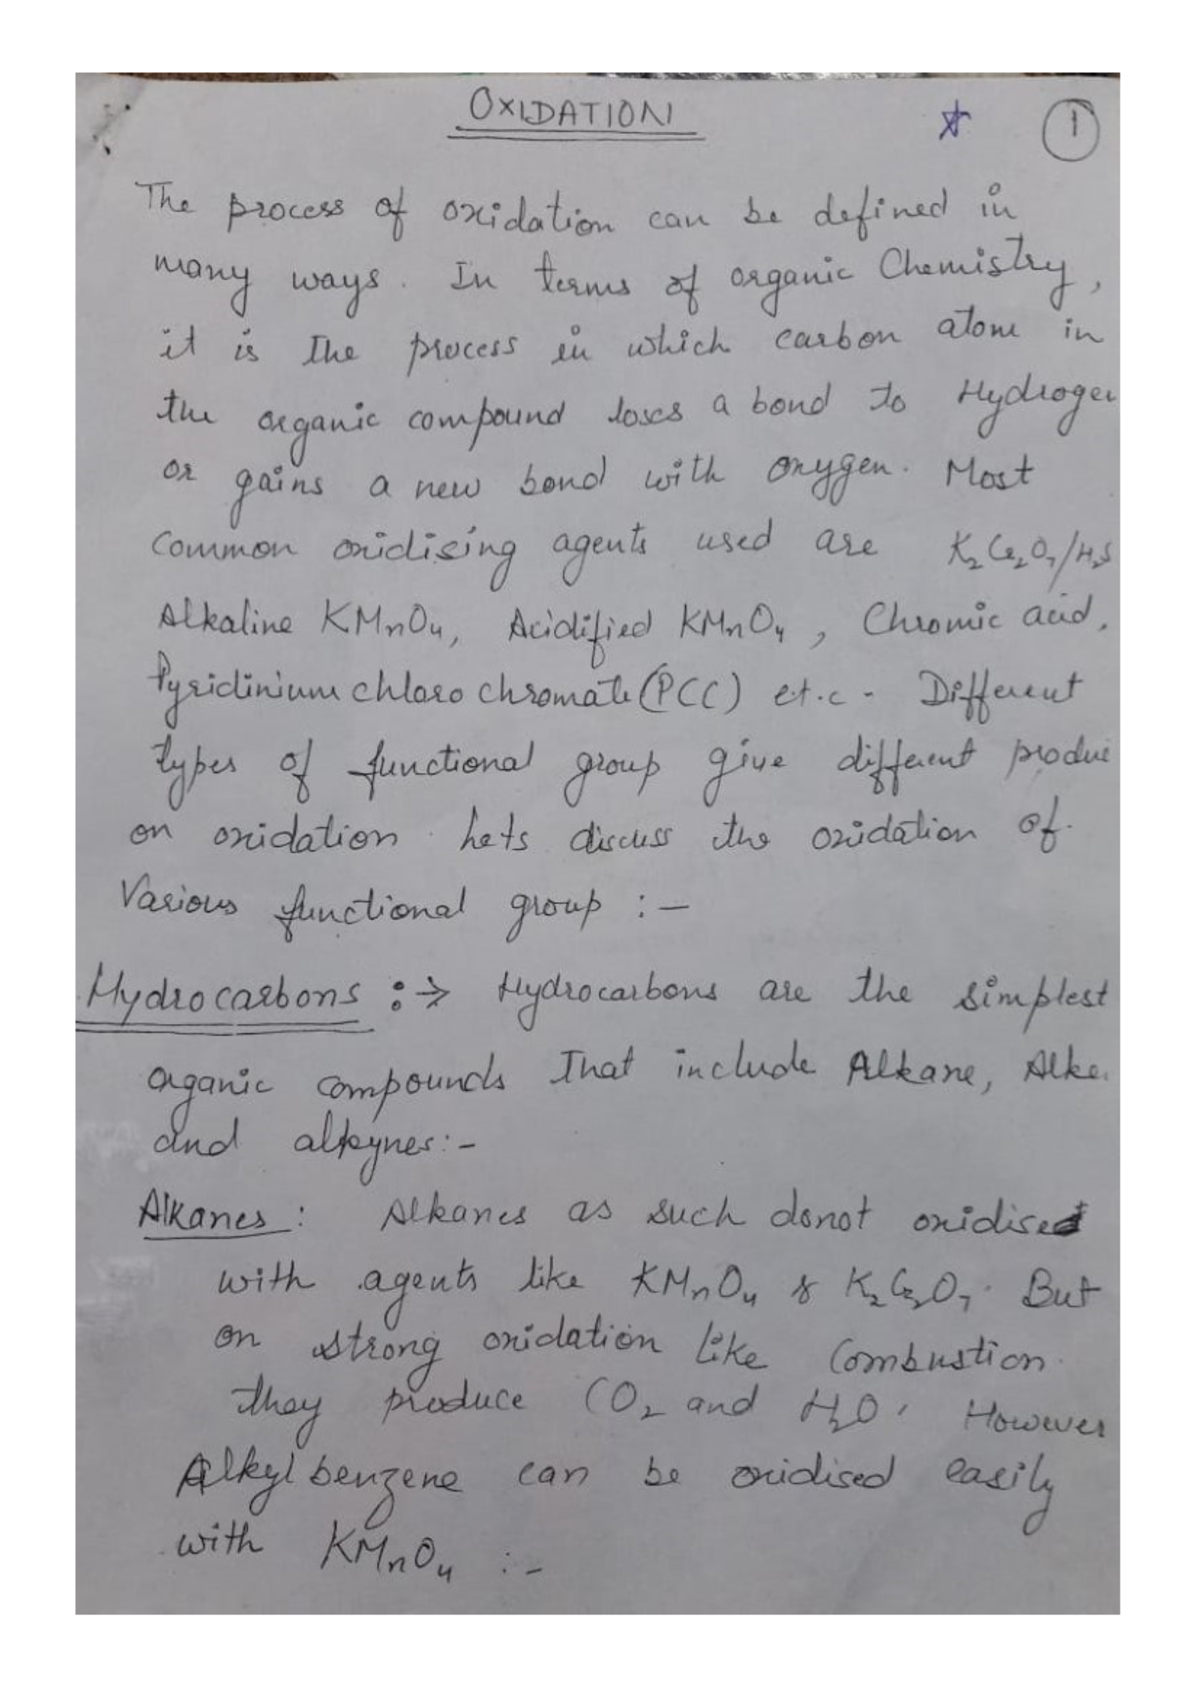 OXIDATION
1
The process of oxidation can be defined in
many ways. In terms of organic Chemistry,
it is the process in which carbon atom in
the organic compound loses a bond to Hydrogen
or gains a new bond with oxygen. Most
common oxidising agents used are K₂Cr₂O₇/H₂S
Alkaline KMnO₄, Acidified KMnO₄, Chromic acid,
Pyridinium chloro chromate (PCC) et.c. Different
types of functional group give different produc
on oxidation. Lets discuss the oxidation of
Various functional group :-
Hydrocarbons :→ Hydrocarbons are the simplest
organic compounds that include Alkane, Alke
and alkynes:-
Alkanes : Alkanes as such donot oxidised
with agents like KMnO₄ & K₂Cr₂O₇. But
on strong oxidation like Combustion
they produce CO₂ and H₂O. However
Alkyl benzene can be oxidised easily
with KMnO₄ :-